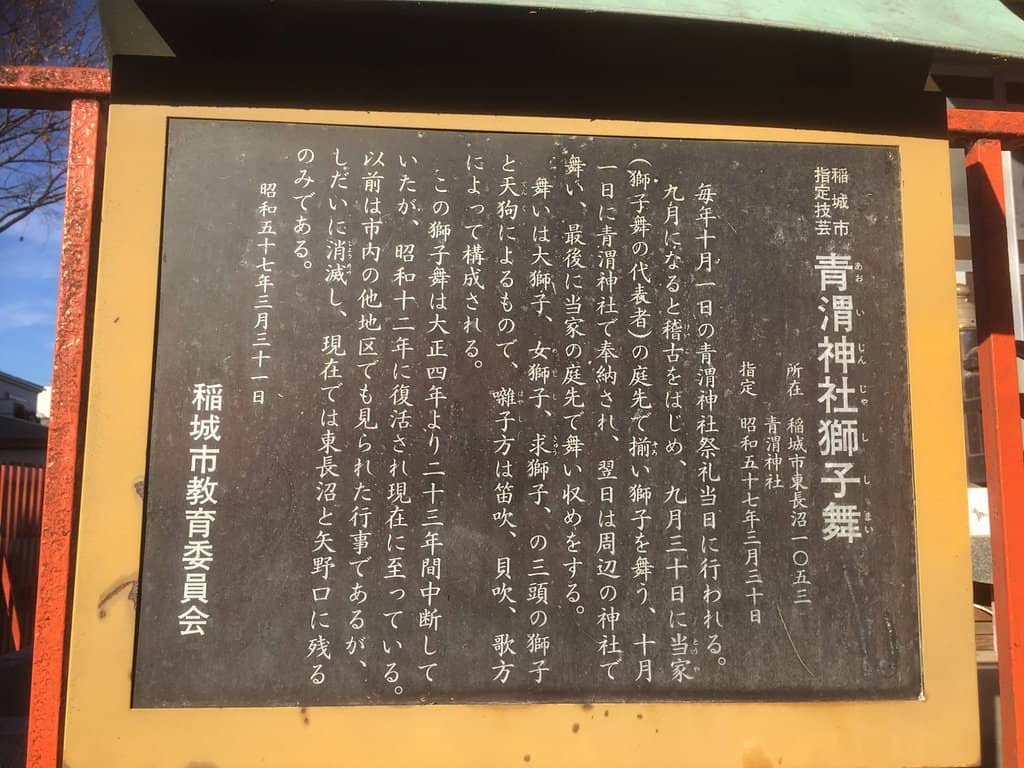 稲城市
指定技芸
青渭神社獅子舞
あおいじんじゃししまい
所在 稲城市東長沼一〇五三
青渭神社
指定 昭和五十七年三月三十日
毎年十月一日の青渭神社祭礼当日に行われる。
九月になると稽古をはじめ、九月三十日に当家
とうや
(獅子舞の代表者)の庭先で揃い獅子を舞う、十月
そろ
一日に青渭神社で奉納され、翌日は周辺の神社で
舞い、最後に当家の庭先で舞い収めをする。
舞いは大獅子、女獅子、求獅子、の三頭の獅子
と天狗によるもので、囃子方は笛吹、貝吹、歌方
てんぐ
はやし
によって構成される。
この獅子舞は大正四年より二十三年間中断して
いたが、昭和十二年に復活され現在に至っている。
以前は市内の他地区でも見られた行事であるが、
しだいに消滅し、現在では東長沼と矢野口に残る
しょうめつ
のみである。
昭和五十七年三月三十一日
稲城市教育委員会